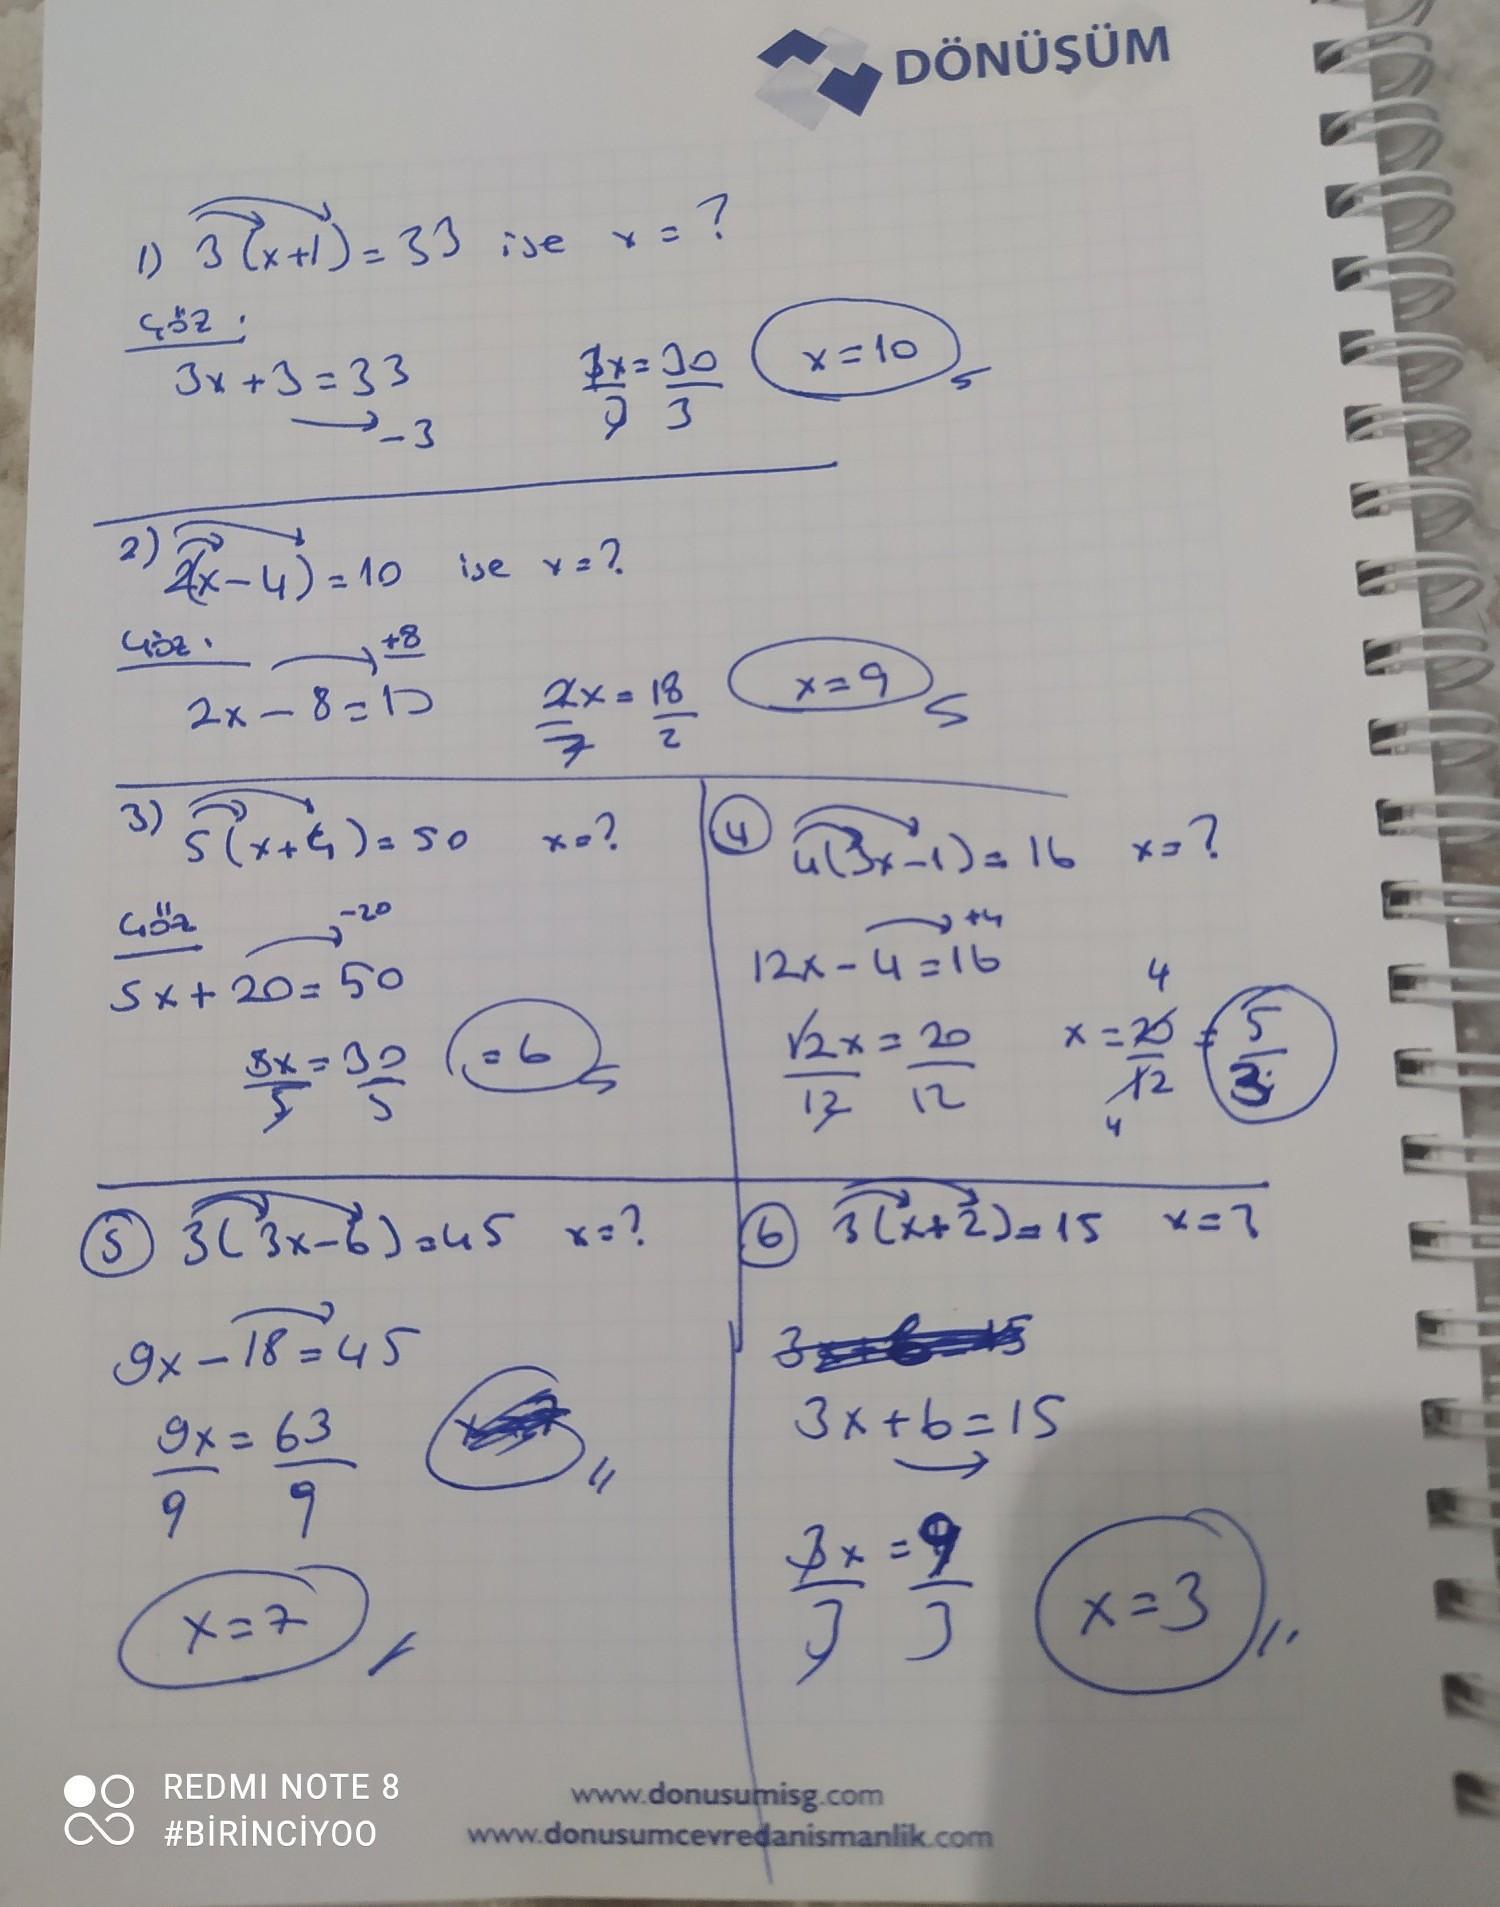 DÖNÜŞÜM
1) 3(x+1)=33 ise x=?
çöz.
3x+3=33
-3
3x=30
3 3
x=10
2) 2(x-4)=10 ise x=?
çöz.
+8
2x-8=10
2x=18
2 2
x=9
3) 5(x+4)=50 x=?
çöz
-20
5x+20=50
5x=30
5 5
=6
4 4(3x-1)=16 x=?
+4
12x-4=16
12x=20
12 12
4
x=20=5
12 3
4
5 3(3x-6)=45 x=?
9x-18=45
9x=63
9 9
x=7
6 3(x+2)=15 x=?
3x+6=15
3x+6=15
3x=9
3 3
x=3
www.donusumisg.com
www.donusumcevredanismanlik.com
REDMI NOTE 8
#BİRİNCİYOO